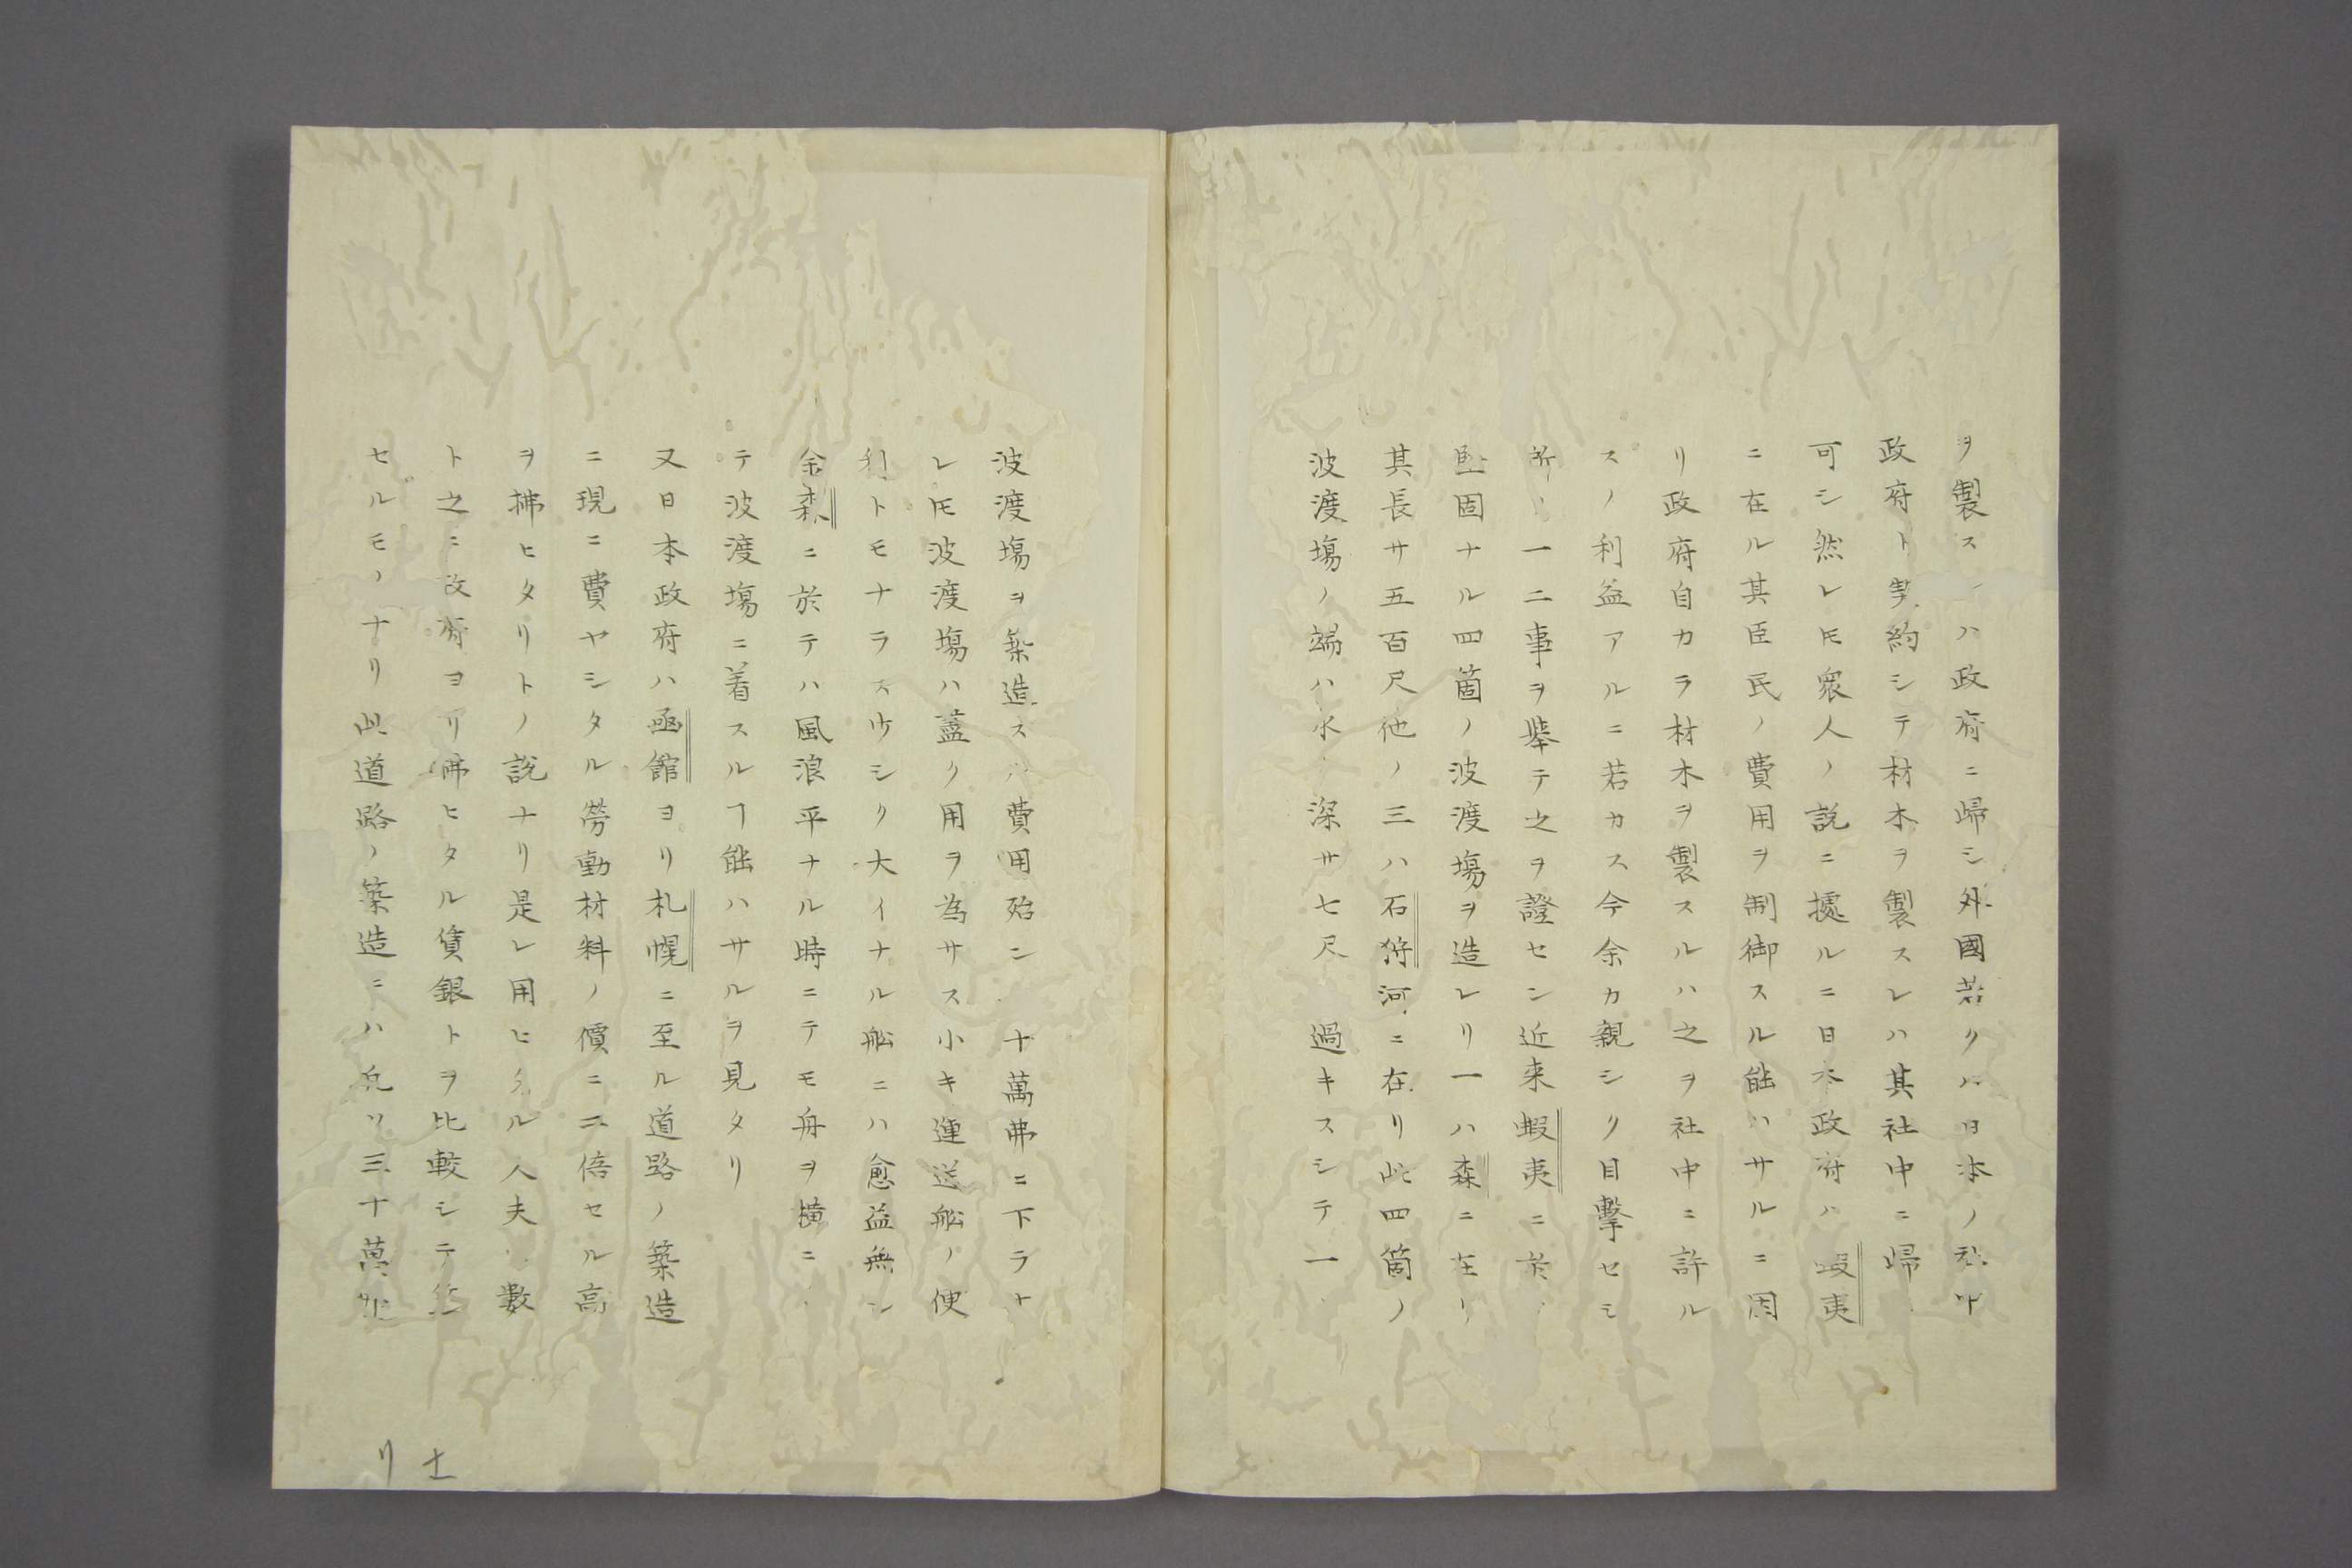 ヲ製スルハ政府ニ歸シ外國若クハ日本ノ社中
政府ト契約シテ材木ヲ製スレハ其社中ニ歸
可シ然レ𪜈衆人ノ説ニ據ルニ日本政府ハ蝦夷
ニ在ル其臣民ノ費用ヲ制御スル能ハサルニ因
リ政府自カラ材木ヲ製スルハ之ヲ社中ニ許ル
スノ利益アルニ若カス今余カ親シク目撃セシ
所ノ一二事ヲ擧テ之ヲ證セン近来蝦夷ニ於
堅固ナル四箇ノ波渡塲ヲ造レリ一ハ森ニ在リ
其長サ五百尺他ノ三ハ石狩河ニ在リ此四箇ノ
波渡塲ノ端ハ水ノ深サ七尺ニ過キスシテ一
波渡塲ヲ築造スル費用殆ン十萬弗ニ下ラナ
レ𪜈波渡塲ハ蓋ク用ヲ為サス小キ運送舩ノ便
利トモナラス少シク大イナル舩ニハ愈益無シ
余森ニ於テハ風浪平ナル時ニテモ舟ヲ横ニ
テ波渡塲ニ着スルヿ能ハサルヲ見タリ
又日本政府ハ函館ヨリ札幌ニ至ル道路ノ築造
ニ現ニ費ヤシタル勞動材料ノ價ニ二倍セル高
ヲ拂ヒタリトノ説ナリ是レ用ヒタル人夫ノ數
ト之ニ政府ヨリ拂ヒタル賃銀トヲ比較シテ
セルモノナリ此道路ノ築造ニハ凡ソ三十萬弗
十一
リ